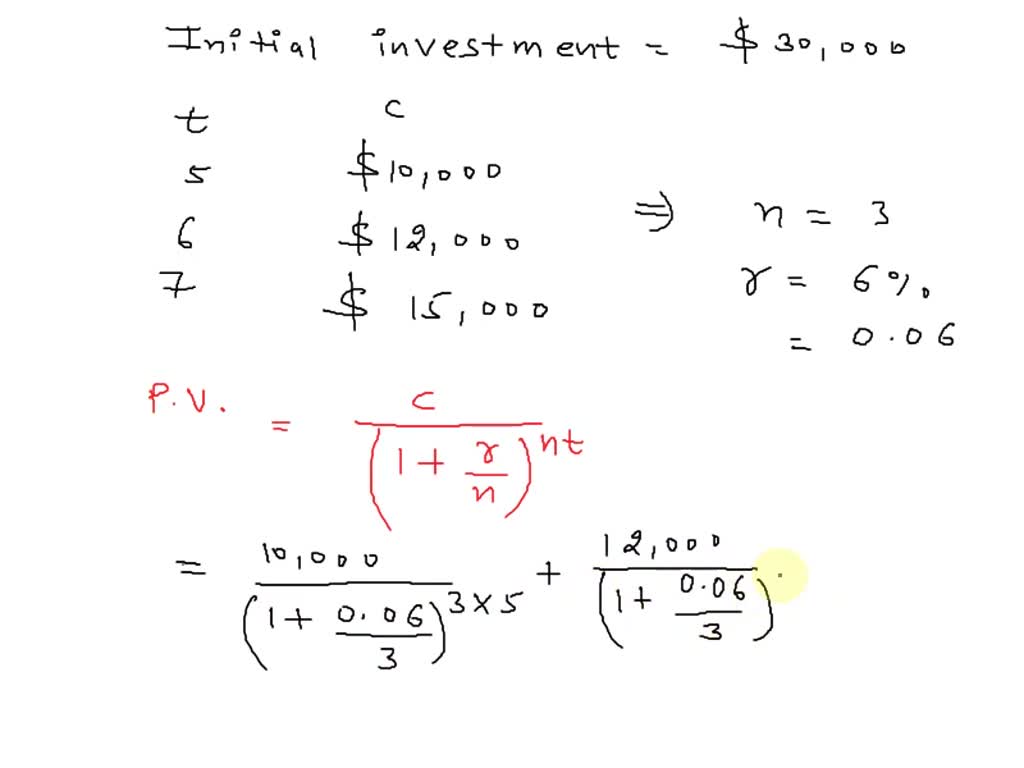 Initial investment = $ 30,000
t c
5 $10,000
6 $12,000 ⇒ n = 3
7 $ 15,000 r = 6%.
= 0.06
P.V. = c / (1 + r/n)^nt
= 10,000 / (1 + 0.06/3)^3×5 + 12,000 / (1 + 0.06/3)^.